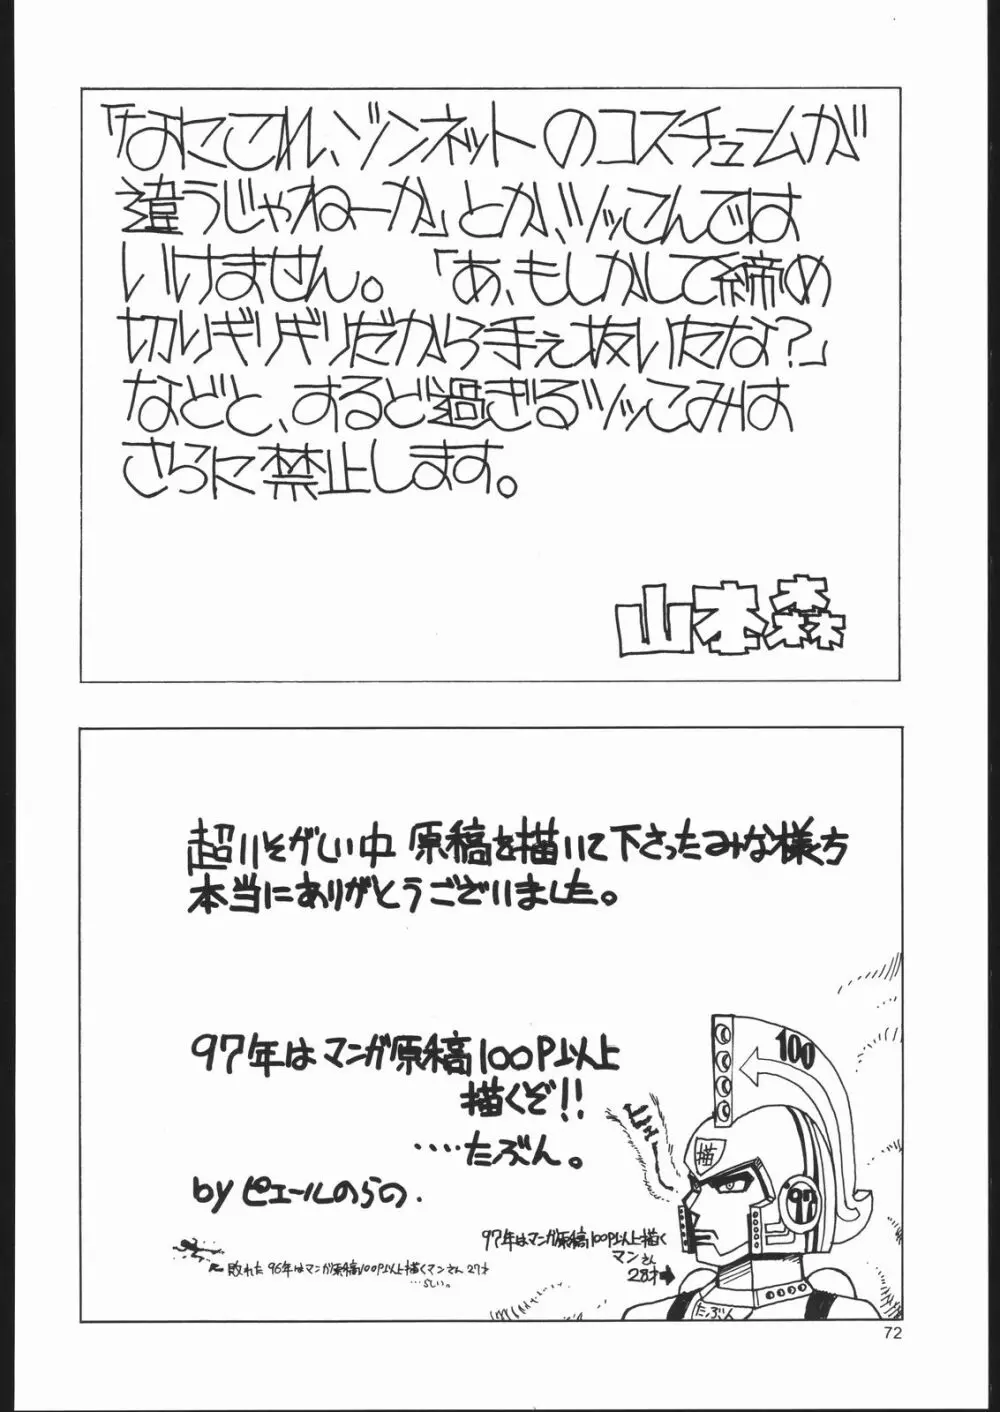 「なにこれ、ゾンネットのコスチュームが
違うじゃねーか」とか、ツッこんでは
いけません。「あ、もしかして締め
切りギリギリだから手ぇ抜いたな?」
などと、するど過ぎるツッこみは
さらに禁止します。
山本森
超いそがしい中 原稿を描いて下さったみな様方
本当にありがとうございました。
97年はマンガ原稿100P以上
描くぞ!!
‥‥たぶん。
by ピエールのらの.
100
描
97
97年はマンガ原稿100P以上描く
マンさん
28才
敗れた 96年はマンガ原稿100P以上描くマンさん 27才
…らしい。
たぶん
72